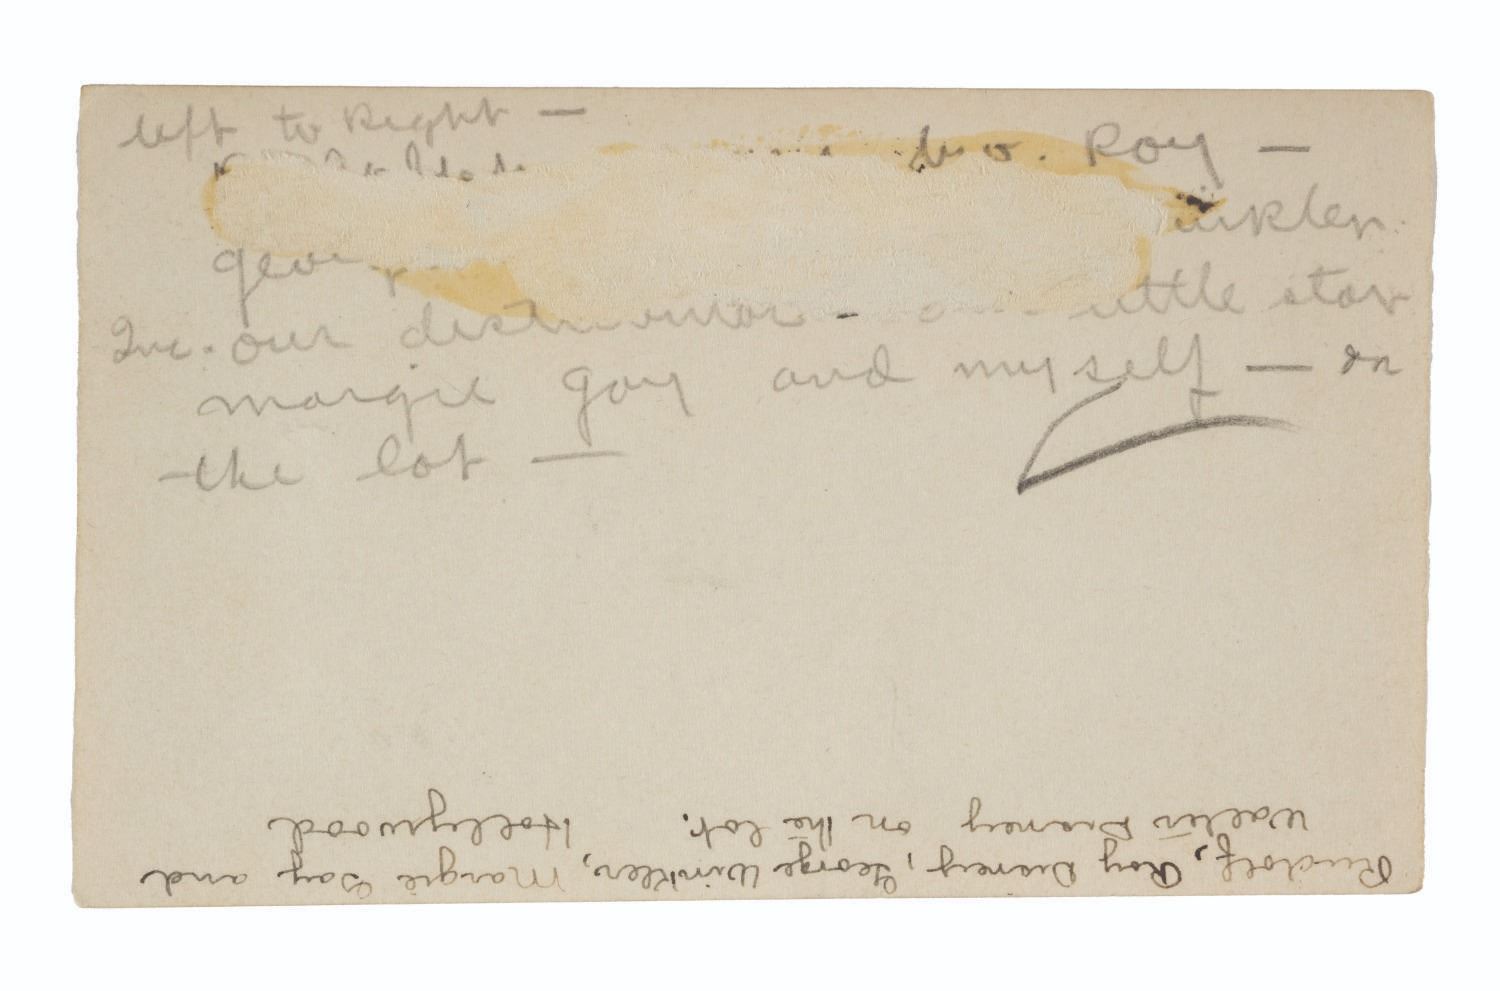 left to Right —
bro. Roy —
Inc. our - little star
margie gay and myself — on
the lot —
Rudolf, Roy Disney, George Winkler, Margie Gay and
Walter Disney on the lot. Hollywood